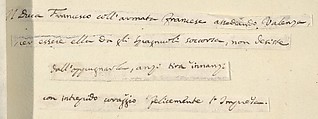 Il Duca Francesco coll' armata francese assediando Valenza
per essere ella da gli Spagnuoli soccorsa, non desiste
dall' oppugnarla, anzi tira innanzi
con intrepido coraggio felicemente l' Impresa.